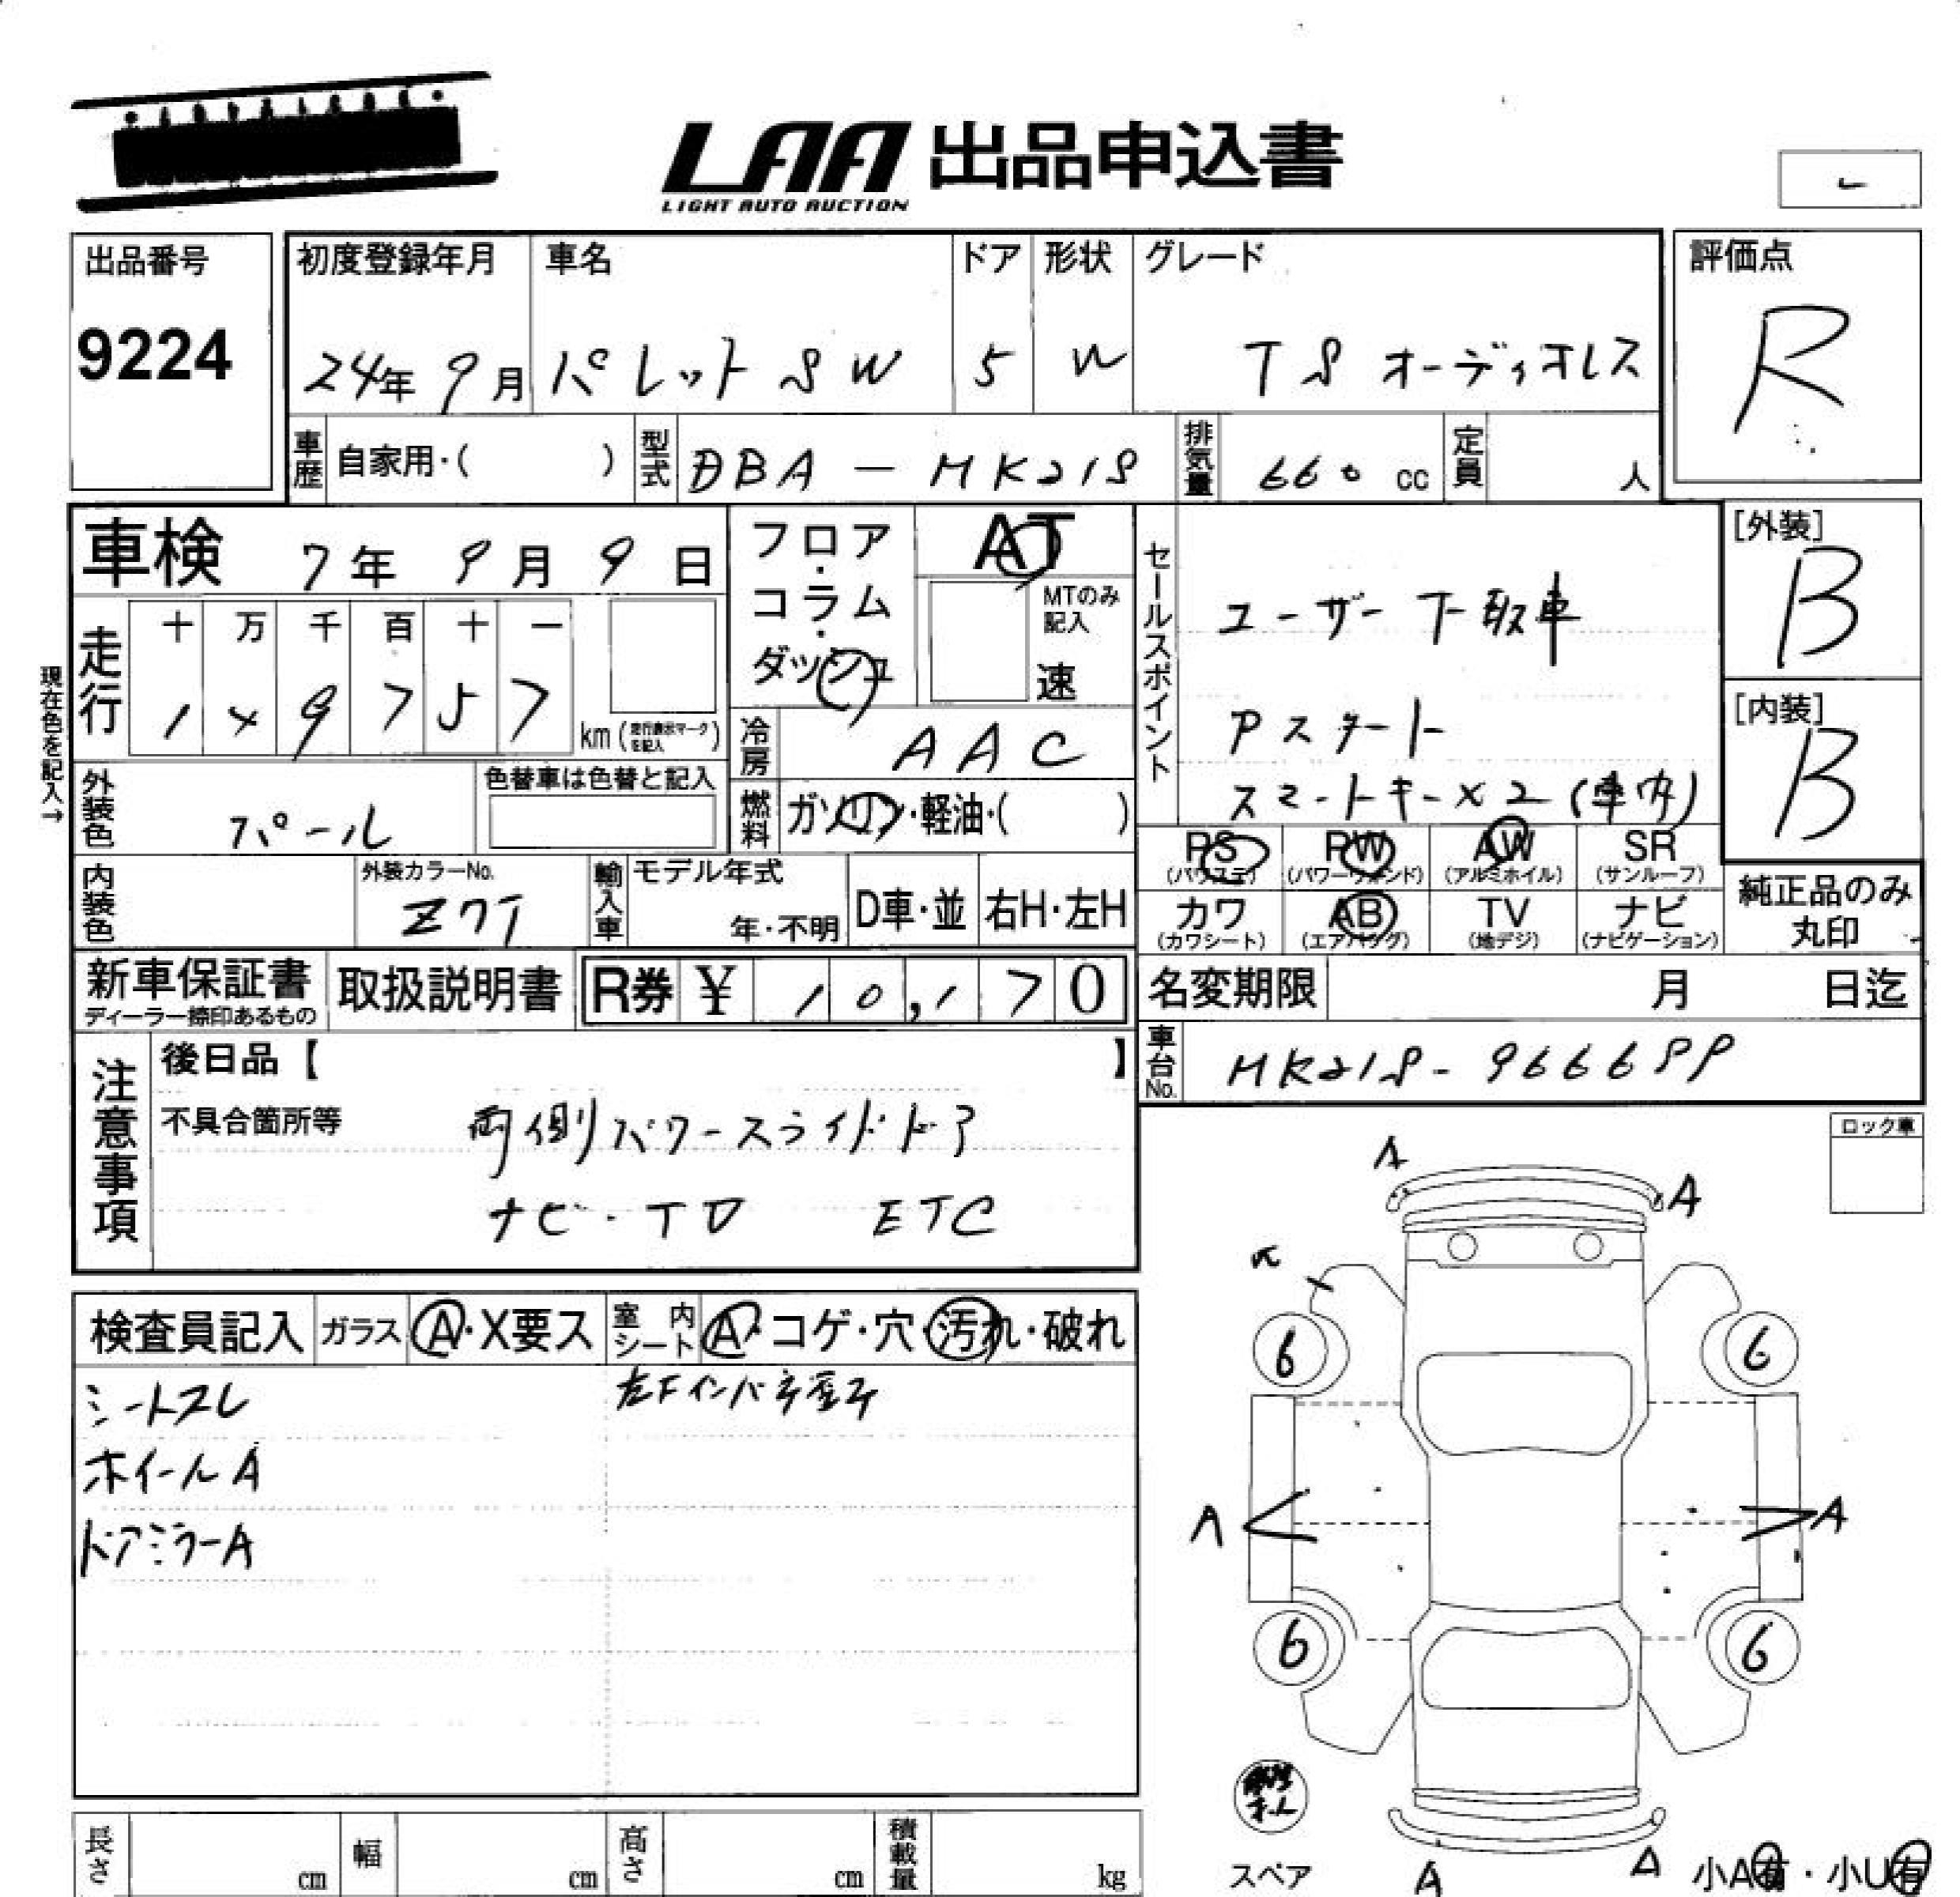 LAA 出品申込書
LIGHT AUTO AUCTION
出品番号
9224
初度登録年月 車名 ドア 形状 グレード
24年 9月 パレット SW 5 W TS オーディオレス
評価点
R
車歴 自家用・( ) 型式 DBA-MK21S 排気量 660 cc 定員 人
車検 7年 9月 9日
走行 十 万 千 百 十 一
1 × 9 7 5 7 km (走行表示マークを記入)
現在色を記入→
外装色 パール
色替車は色替と記入
内装色
外装カラーNo.
Z7T
輸入車 モデル年式
年・不明 D車・並 右H・左H
フロア・コラム・ダッシュ
AT
MTのみ記入
速
冷房 AAC
燃料 ガソリン・軽油・( )
セールスポイント
ユーザー下取車
Pスタート
スマートキー×2(車内)
[外装]
B
[内装]
B
PS PW AW SR
(パワステ) (パワーウインド) (アルミホイル) (サンルーフ)
カワ AB TV ナビ
(カワシート) (エアバッグ) (地デジ) (ナビゲーション)
純正品のみ
丸印
新車保証書
ディーラー捺印あるもの
取扱説明書
R券 ¥ 10,170
名変期限 月 日迄
車台No. MK21S-
注意事項
後日品【 】
不具合箇所等 両側パワースライドドア
ナビ・TV ETC
ロック車
検査員記入 ガラス A・X要ス 室内シート A・コゲ・穴・汚れ・破れ
シートスレ
ホイールA
ドアミラーA
A
A
6
6
A
A
6
6
A
A
スペア
小A有・小U有
長さ cm 幅 cm 高さ cm 積載量 kg